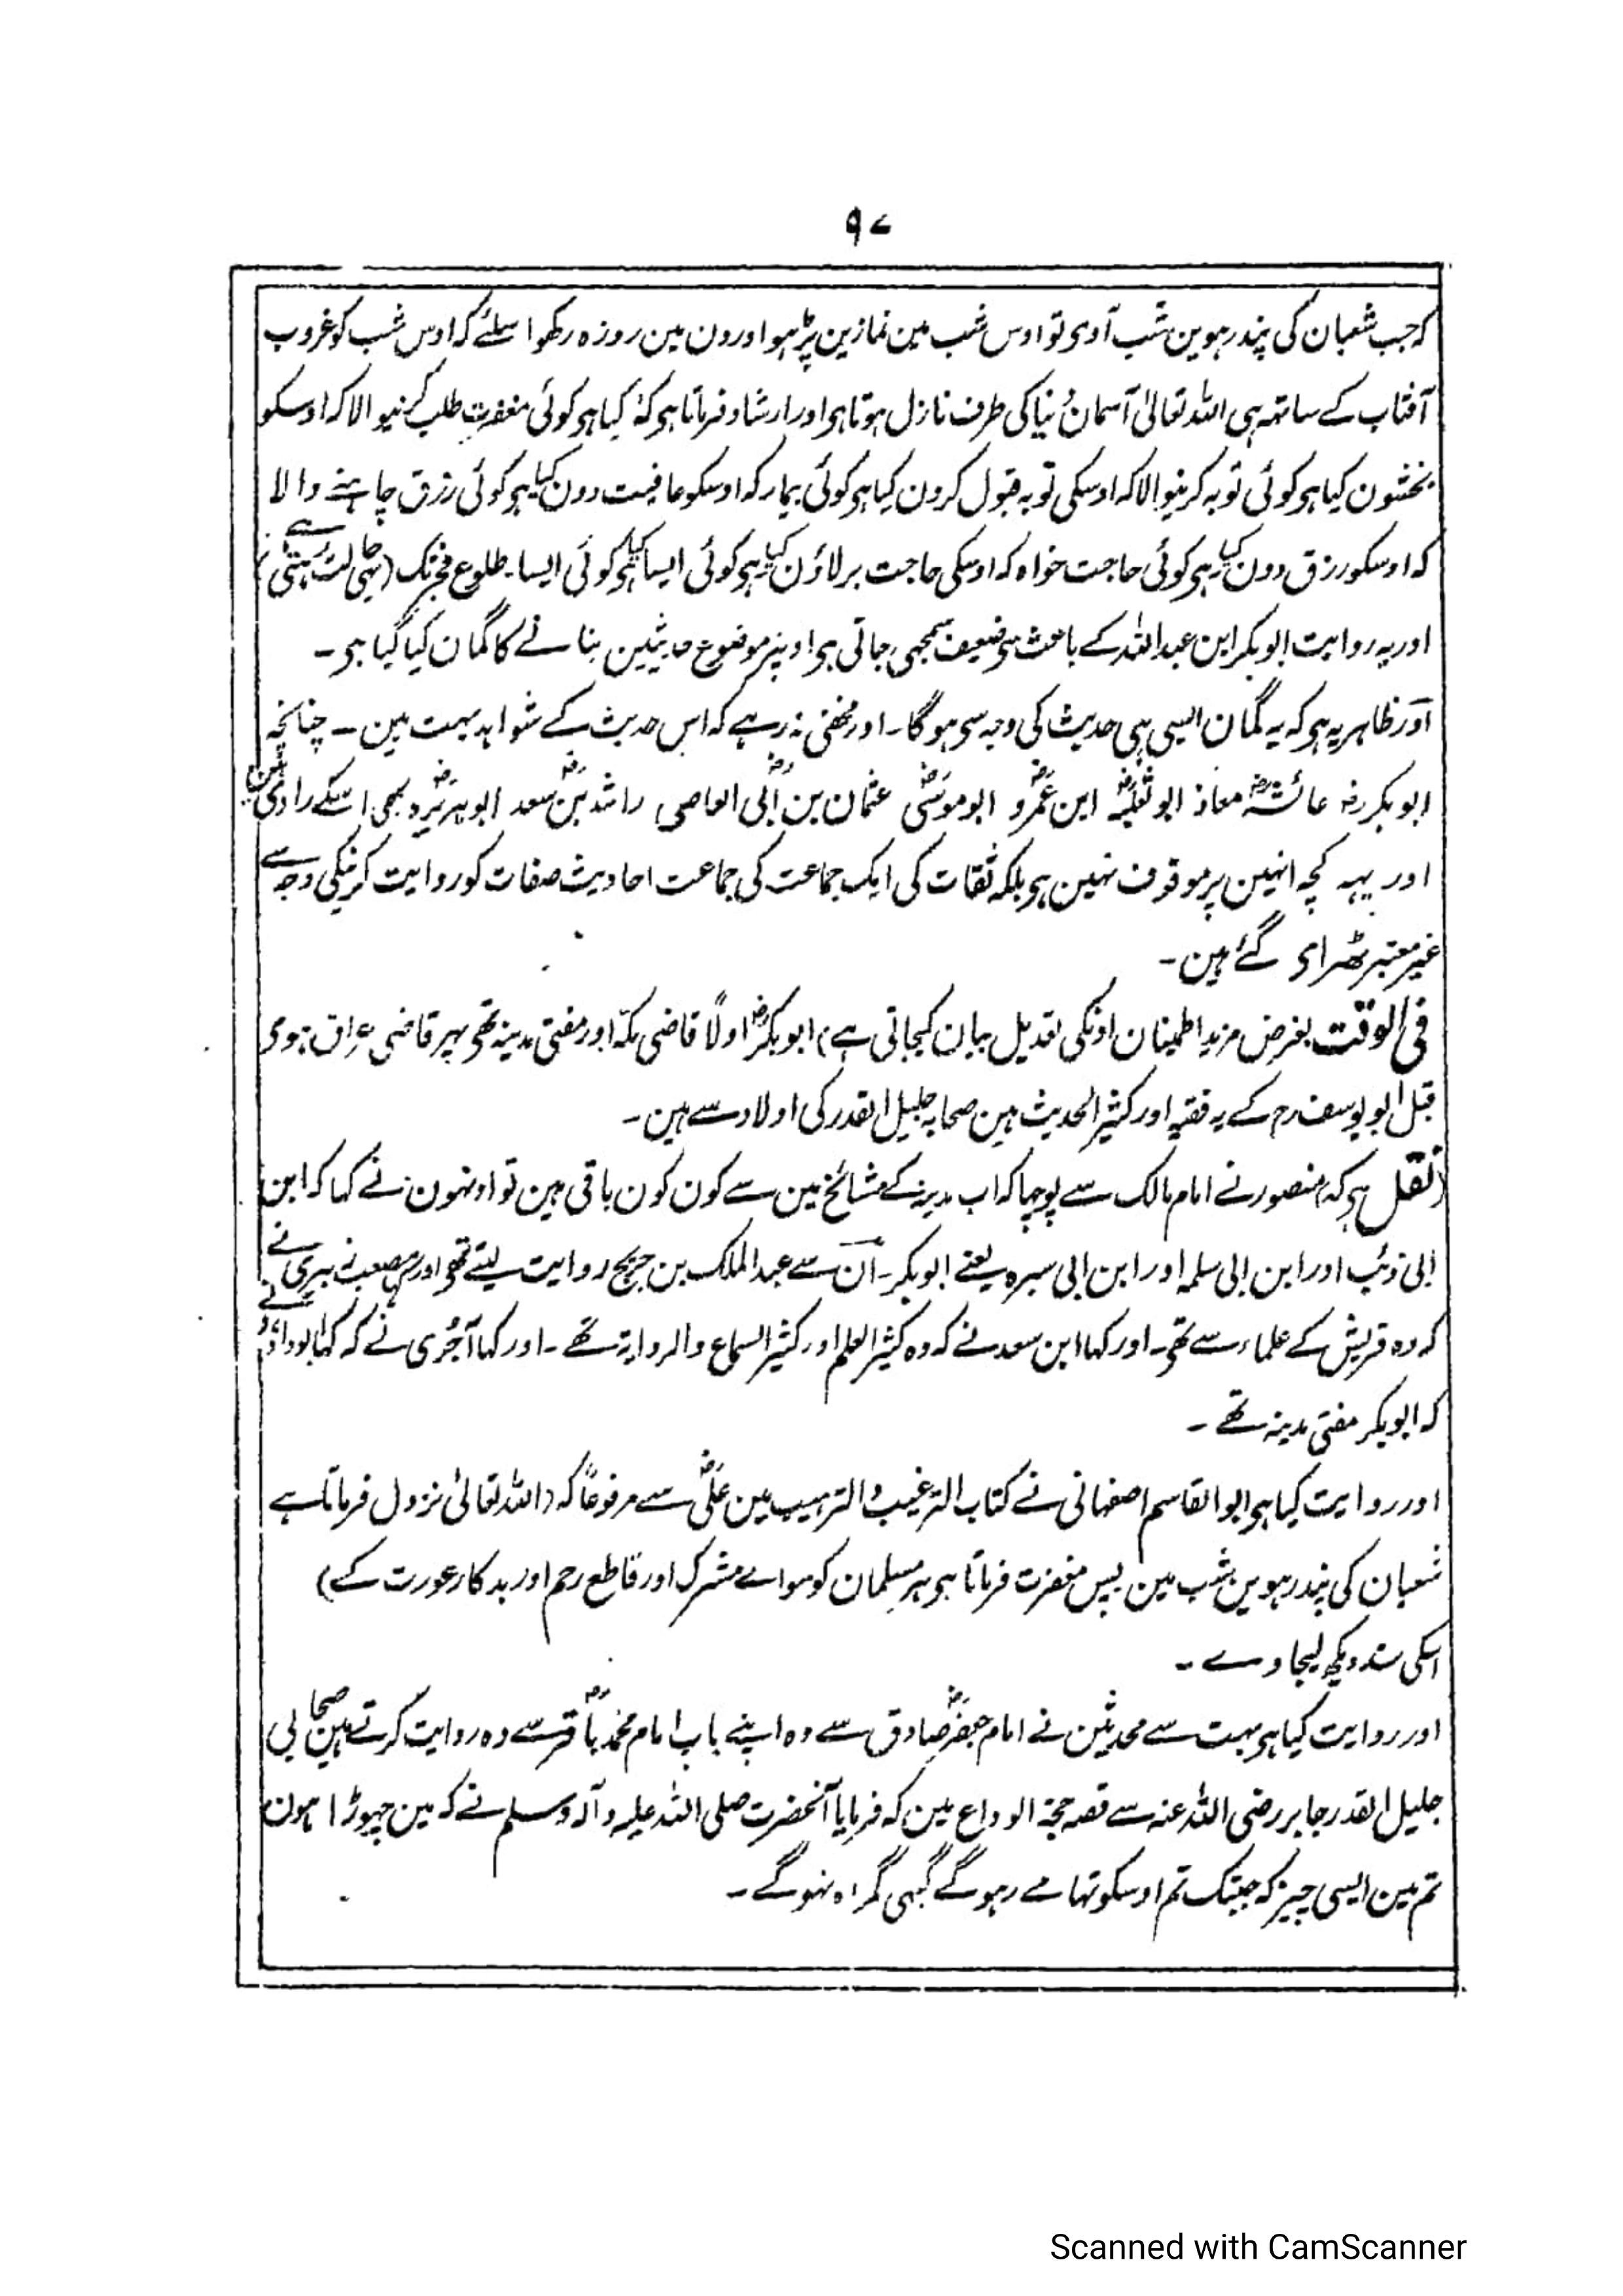 ۹۷
کہ جب شعبان کی پندرہوین شب آوی تو اوس شب مین نمازین پڑہو اور دن مین روزہ رکھو اسلئے کہ اوس شب کو غروب
آفتاب کے ساتہہ ہی اللہ تعالیٰ آسمان دنیا کی طرف نازل ہوتا ہو اور ارشاد فرماتا ہو کہ کیا ہو کوئی مغفرت طلب کرنیوالا کہ اوسکو
بخشون کیا ہو کوئی توبہ کرنیوالا کہ اوسکی توبہ قبول کرون کیا ہو کوئی بیمار کہ اوسکو عافیت دون کیا ہو کوئی رزق چاہنے والا
کہ اوسکو رزق دون کیا ہو کوئی حاجت خواہ کہ اوسکی حاجت بر لاؤن کیا ہو کوئی ایسا کیا ہو کوئی ایسا۔ طلوع فجر تک (یہی حالت رہتی ہے)
اور یہ روایت ابوبکر ابن عبداللہ کے باعث سی ضعیف سمجہی جاتی ہو اونپر موضوع حدیثین بنانے کا گمان کیا گیا ہو۔
اور ظاہر یہ ہو کہ یہ گمان ایسی ہی حدیث کی وجہ سی ہوگا۔ اور مخفی نہ رہے کہ اس حدیث کے شواہد بہت ہین۔ چنانچہ
ابوبکرؓ عائشہؓ معاذ ابو ثعلبہؓ ابن عمرؓو ابوموسیٰؓ عثمان بن ابی العاصی راشد بن سعد ابوہریرہؓ بھی اسکے راوی ہین
اور یہہ کچہ انہین پر موقوف نہین ہو بلکہ ثقات کی ایک جماعت کی جماعت احادیث صفات کو روایت کرنیکی وجہ سے
غیر معتبر ٹھرای گئے ہین۔
فی الوقت بغرض مزید اطمینان اونکی تعدیل بیان کیجاتی ہے) ابوبکرؓ اولاً قاضی مکہ اور مفتی مدینہ تھی پہر قاضی عراق ہوی
قبل ابو یوسف رح کے یہ فقیہ اور کثیر الحدیث ہین صحابہ جلیل القدر کی اولاد سے ہین۔
(نقل ہو کہ) منصور نے امام مالک سے پوچہا کہ اب مدینہ کے مشائخ مین سے کون کون باقی ہین تو اونہون نے کہا کہ ابن
ابی ذئب اور ابن ابی سلمہ اور ابن ابی سبرہ یعنے ابوبکر۔ ان سے عبدالملک بن جریج روایت لیتے تھی اور کہا مصعب زبیری نے
کہ وہ قریش کے علماء سے تھی۔ اور کہا ابن سعد نے کہ وہ کثیر العلم اور کثیر السماع والروایۃ تھے۔ اور کہا آجُری نے کہ کہا ابوداؤد نے
کہ ابوبکر مفتی مدینہ تھے۔
اور روایت کیا ہو ابوالقاسم اصفہانی نے کتاب الترغیب والترہیب مین علیؓ سے مرفوعاً کہ (اللہ تعالیٰ نزول فرماتا ہے
شعبان کی پندرہوین شب مین پس مغفرت فرماتا ہو ہر مسلمان کو سواے مشرک اور قاطع رحم اور بدکار عورت کے)
اسکی سند دیکھ لیجاوے۔
اور روایت کیا ہو بہت سے محدثین نے امام جعفرؓ صادق سے وہ اپنے باپ امام محمد باقرؓ سے وہ روایت کرتے ہین صحابی
جلیل القدر جابر رضی اللہ عنہ سے قصہ حجۃ الوداع مین کہ فرمایا آنحضرت صلی اللہ علیہ وآلہ وسلم نے کہ مین چہوڑا ہون
تم مین ایسی چیز کہ جبتک تم اوسکو تہامے رہوگے کبہی گمراہ نہوگے۔
Scanned with CamScanner